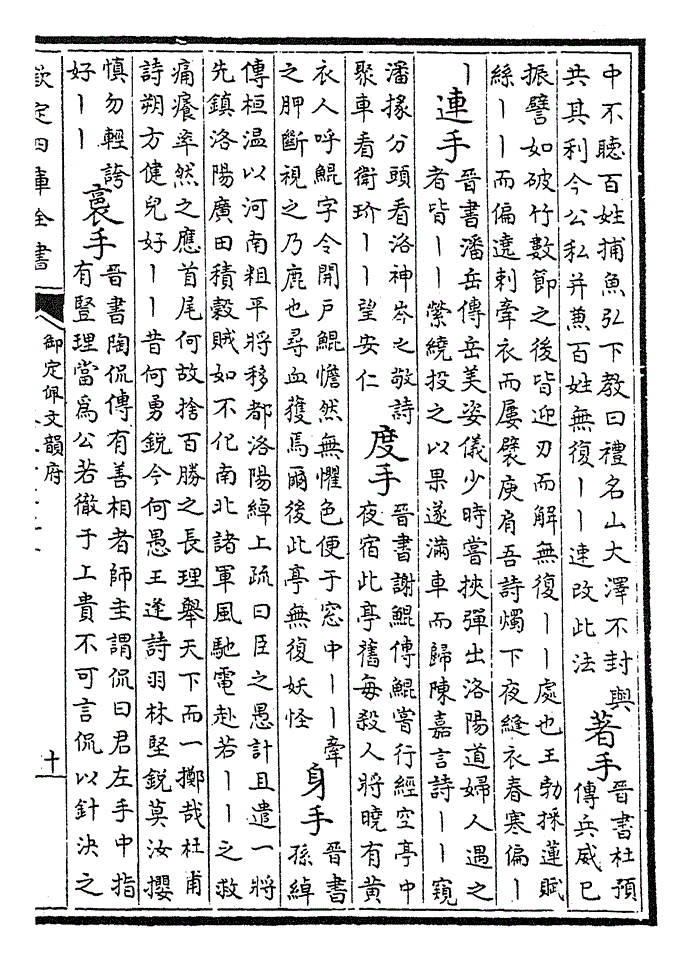 中不聽百姓捕魚弘下教曰禮名山大澤不封與
共其利今公私并兼百姓無復丨丨速改此法
著手
晉書杜預
傳兵威已
振譬如破竹數節之後皆迎刃而解無復丨丨處也王勃採蓮賦
絲丨丨而偏遶刺牽衣而屢襞庾肩吾詩燭下夜縫衣春寒偏丨
丨
連手
晉書潘岳傳岳美姿儀少時嘗挾彈出洛陽道婦人遇之
者皆丨丨縈繞投之以果遂滿車而歸陳嘉言詩丨丨窺
潘掾分頭看洛神岑之敬詩
聚車看衛玠丨丨望安仁
度手
晉書謝鯤傳鯤嘗行經空亭中
夜宿此亭舊每殺人將曉有黄
衣人呼鯤字令開戶鯤憺然無懼色便于窓中丨丨牽
之胛斷視之乃鹿也尋血獲焉爾後此亭無復妖怪
身手
晉書
孫綽
傳桓温以河南粗平將移都洛陽綽上疏曰臣之愚計且遣一將
先鎮洛陽廣田積穀賊如不化南北諸軍風馳電赴若丨丨之救
痛癢率然之應首尾何故捨百勝之長理舉天下而一擲哉杜甫
詩朔方健兒好丨丨昔何勇銳今何愚王逢詩羽林堅銳莫汝攖
慎勿輕誇
好丨丨
裹手
晉書陶侃傳有善相者師圭謂侃曰君左手中指
有豎理當為公若徹于上貴不可言侃以針決之
欽定四庫全書
御定佩文韻府
十